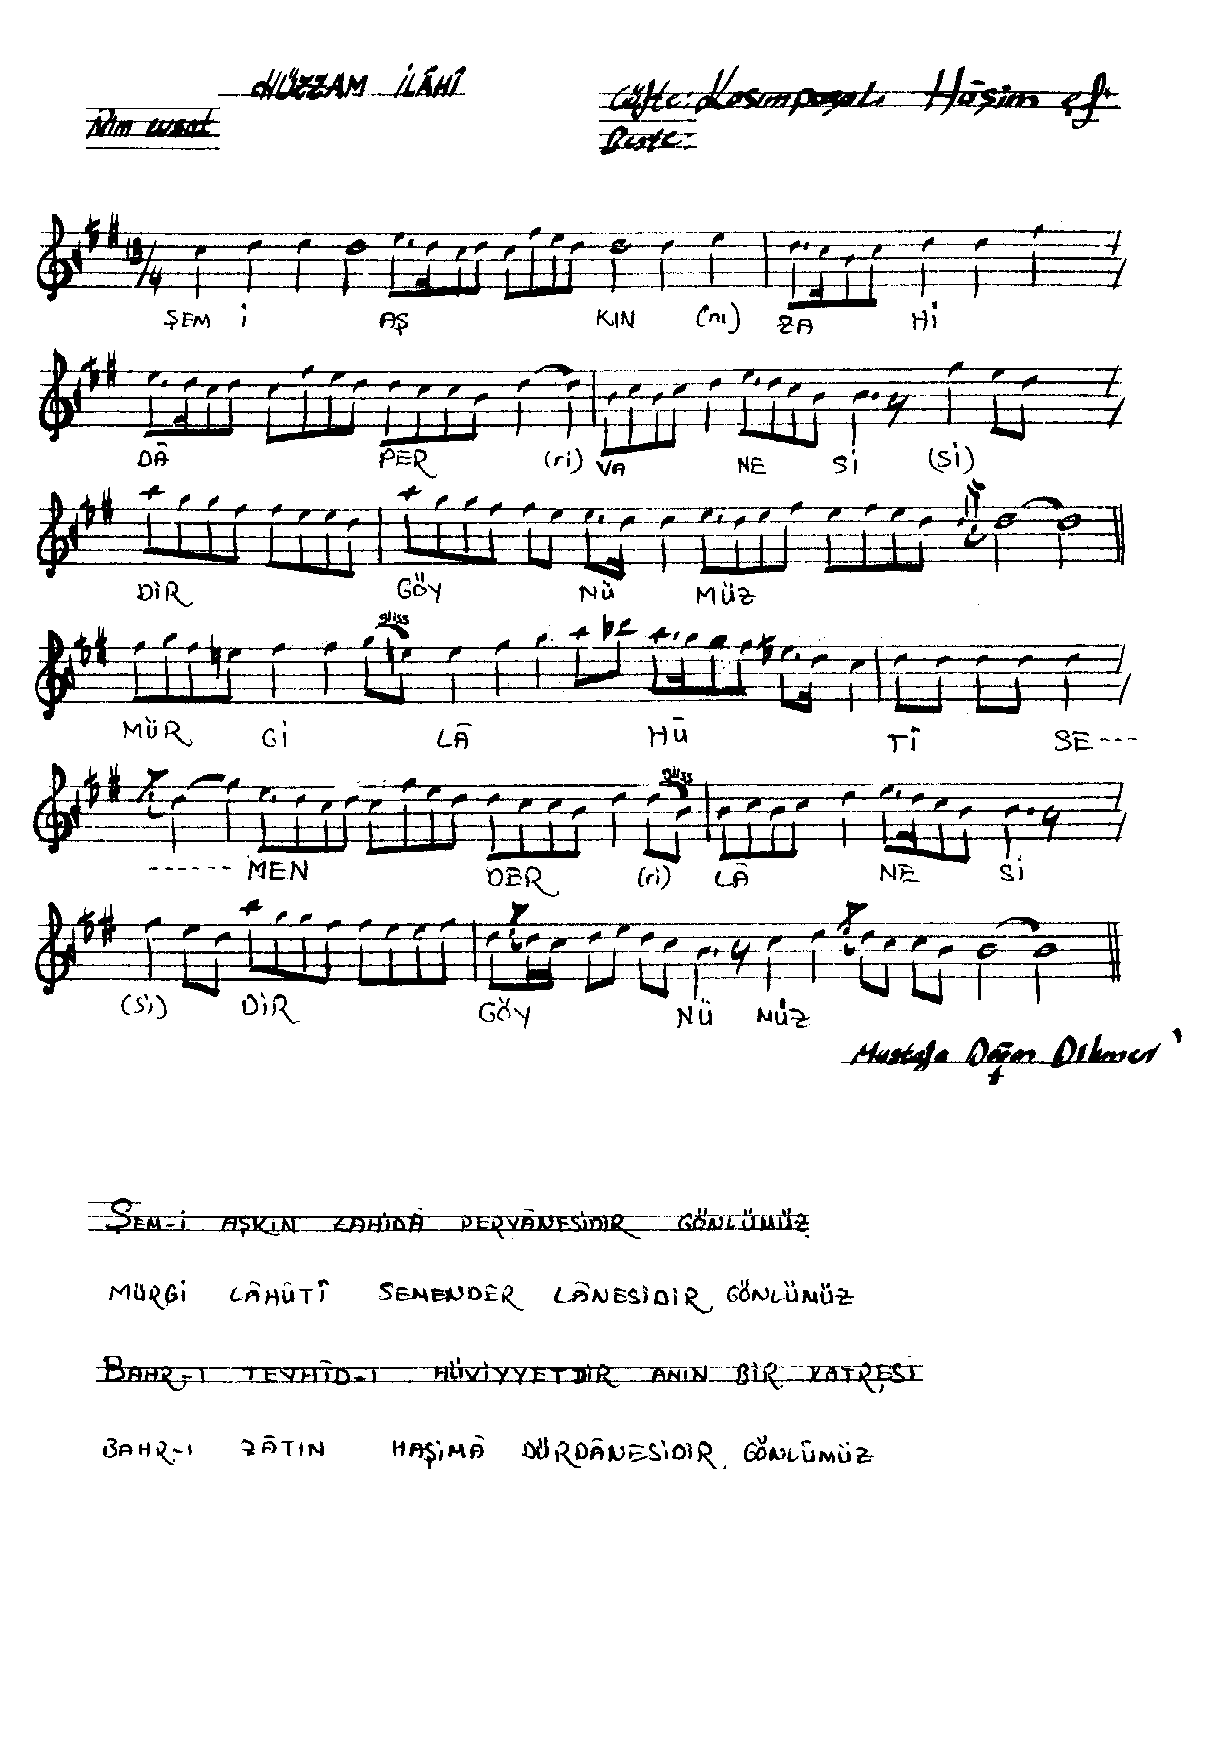 HÜZZAM İLÂHÎ
Güfte: Kasımpaşalı Hâşim ef.
Nim evsat
Beste:
ŞEM İ AŞ KIN (nı) ZA Hİ
DÂ PER (ri) VA NE Sİ (Sİ)
DİR GÖY NÜ MÜZ
gliss
MÜR Gİ LÂ HÛ TÎ SE---
gliss
------ MEN DER (ri) LÂ NE Sİ
(Sİ) DİR GÖY NÜ MÜZ
Mustafa Doğan Dikmen
ŞEM-İ AŞKIN ZAHİDÂ PERVÂNESİDİR GÖNLÜMÜZ
MÜRGİ LÂHÛTÎ SEMENDER LÂNESİDİR GÖNLÜMÜZ
BAHR-I TEVHÎD-I HÜVİYYETDİR ANIN BİR KATRESİ
BAHR-I ZÂTIN HAŞİMÂ DÜRDÂNESİDİR GÖNLÜMÜZ